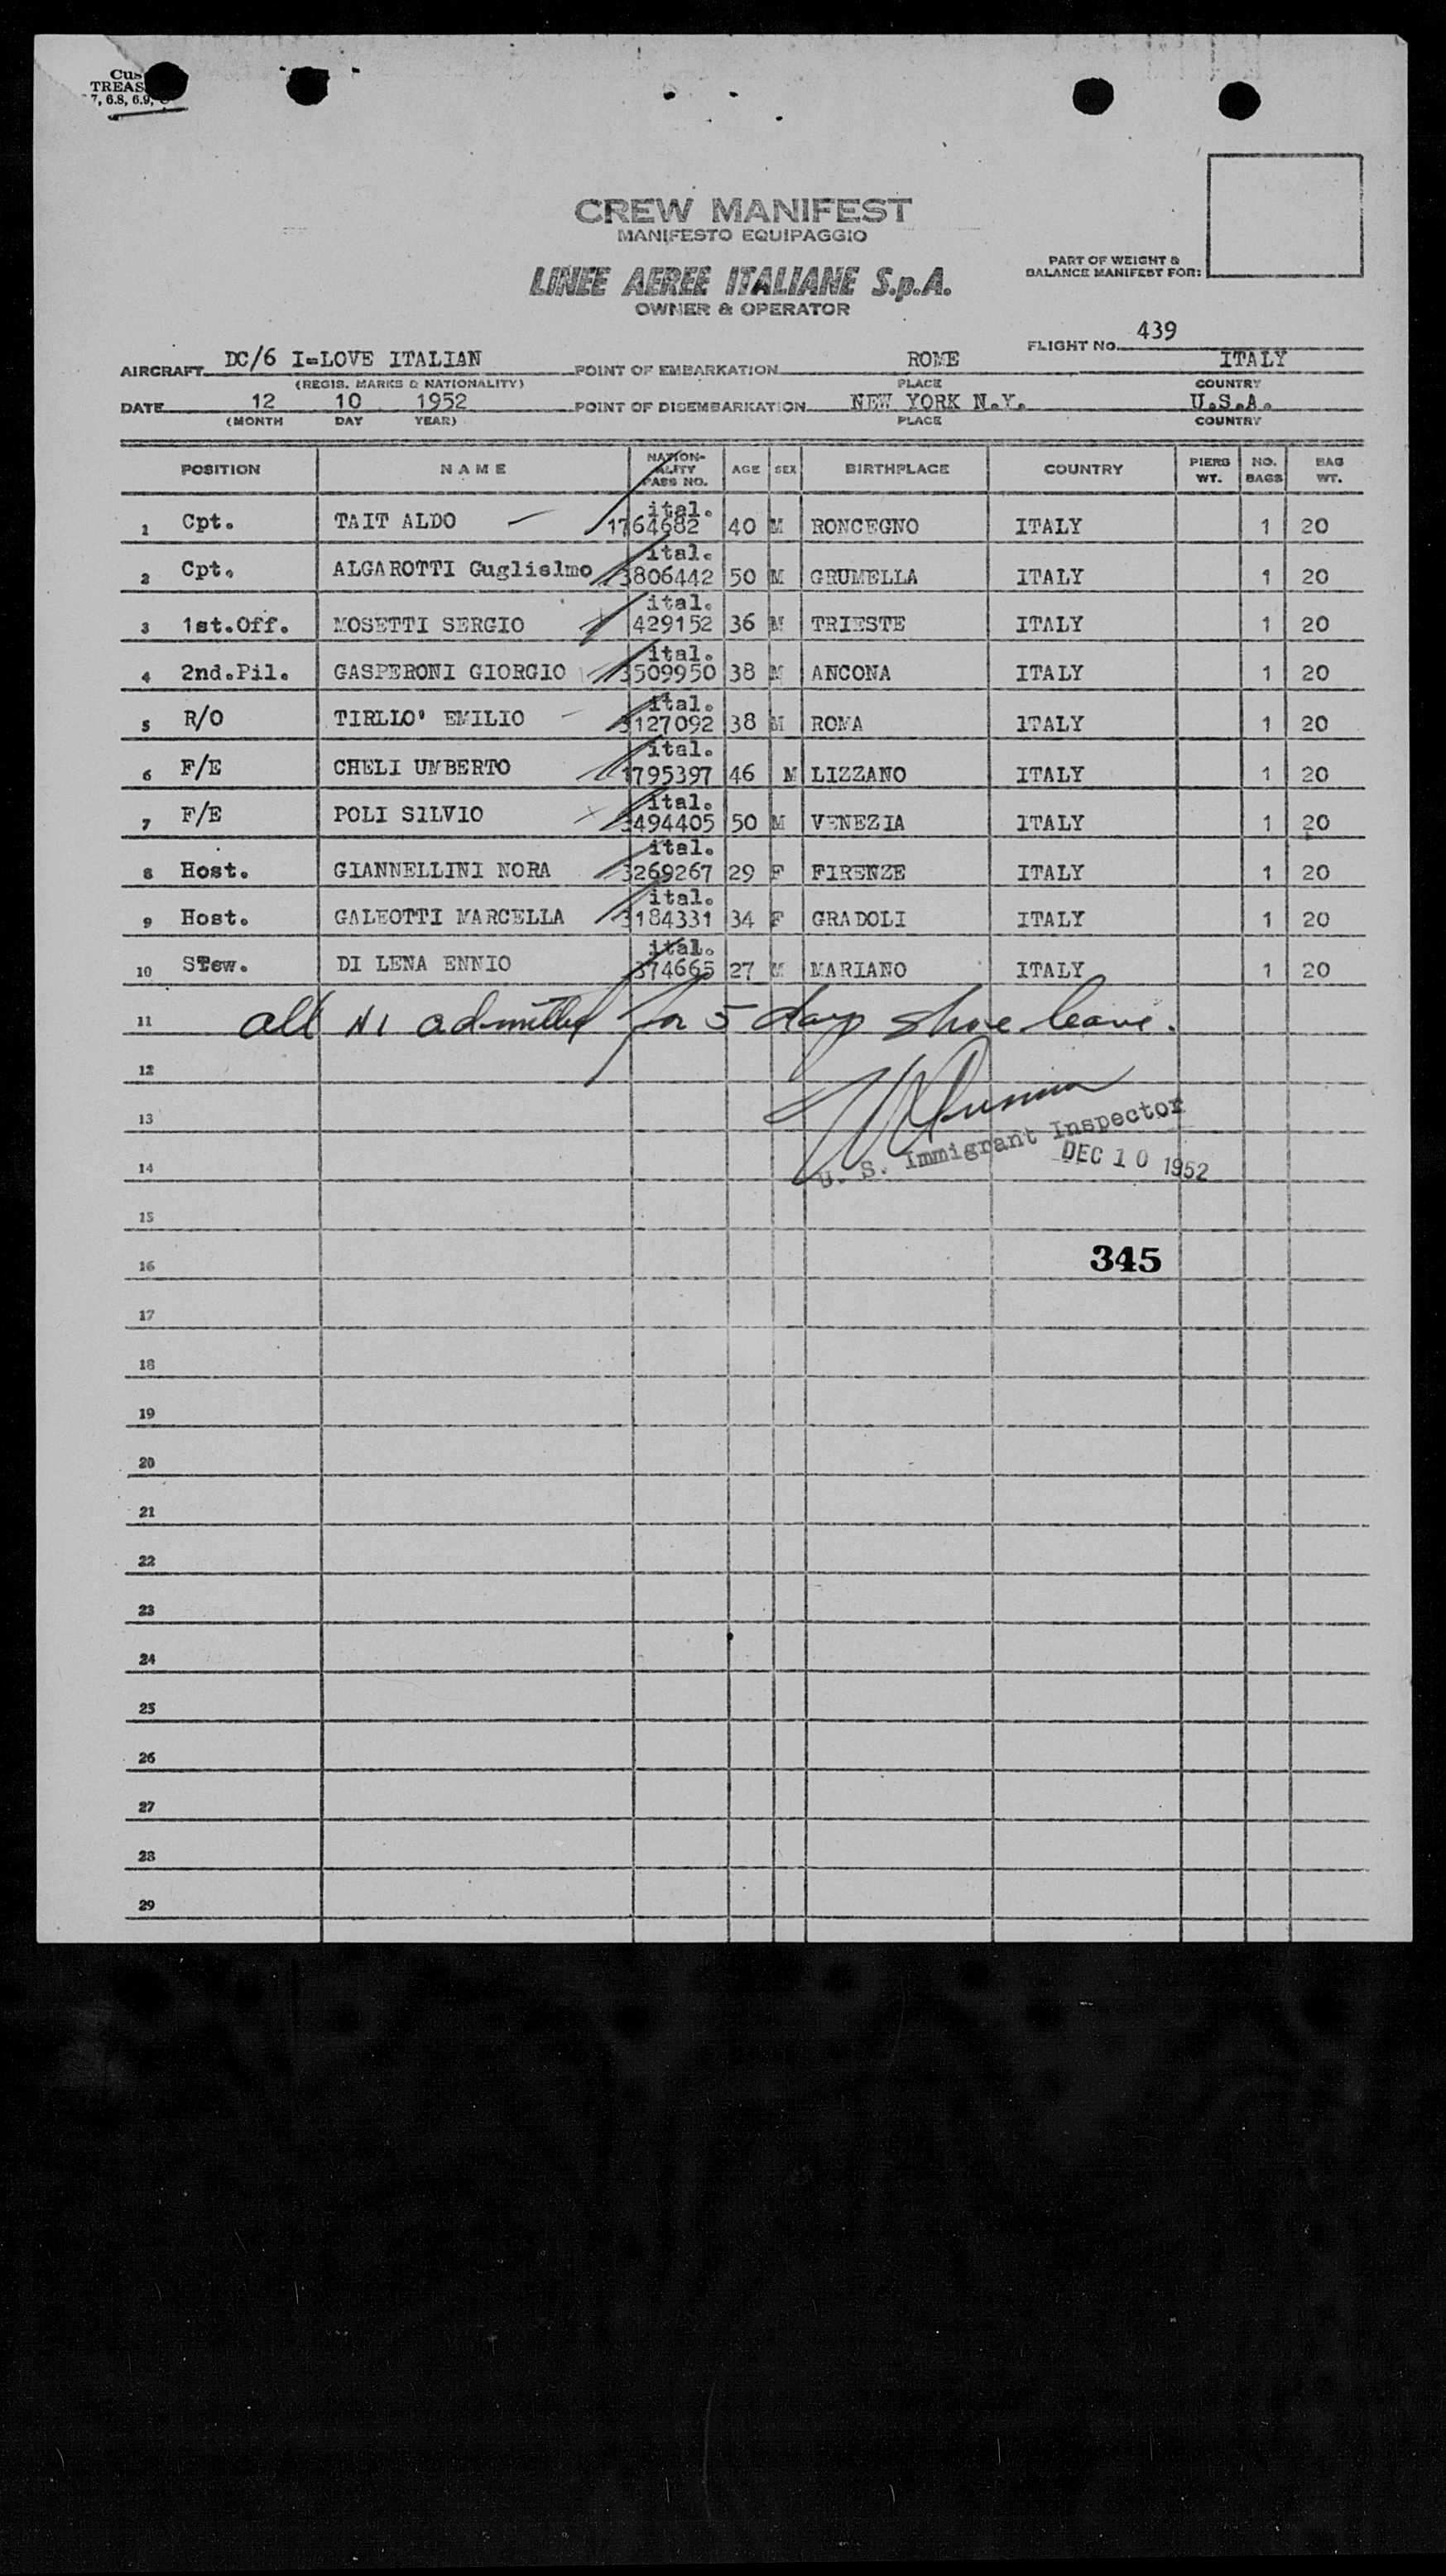 TREAS
7, 6.8, 6.9,
CREW MANIFEST
MANIFESTO EQUIPAGGIO
LINEE AEREE ITALIANE S.p.A.
OWNER & OPERATOR
PART OF WEIGHT &
BALANCE MANIFEST FOR:
FLIGHT NO. 439
AIRCRAFT DC/6 I=LOVE ITALIAN POINT OF EMBARKATION ROME ITALY
(REGIS. MARKS & NATIONALITY) PLACE COUNTRY
DATE 12 10 1952 POINT OF DISEMBARKATION NEW YORK N.Y. U.S.A.
(MONTH DAY YEAR) PLACE COUNTRY
POSITION NAME NATION-ALITY PASS NO. AGE SEX BIRTHPLACE COUNTRY PIERS WT. NO. BAGS BAG WT.
1 Cpt. TAIT ALDO ital. 1764682 40 M RONCEGNO ITALY 1 20
2 Cpt. ALGAROTTI Guglielmo ital. 3806442 50 M GRUMELLA ITALY 1 20
3 1st.Off. MOSETTI SERGIO ital. 429152 36 M TRIESTE ITALY 1 20
4 2nd.Pil. GASPERONI GIORGIO ital. 3509950 38 M ANCONA ITALY 1 20
5 R/O TIRLLO' EMILIO ital. 3127092 38 M ROMA ITALY 1 20
6 F/E CHELI UMBERTO ital. 1795397 46 M LIZZANO ITALY 1 20
7 F/E POLI SILVIO ital. 3494405 50 M VENEZIA ITALY 1 20
8 Host. GIANNELLINI NORA ital. 3269267 29 F FIRENZE ITALY 1 20
9 Host. GALEOTTI MARCELLA ital. 3184331 34 F GRADOLI ITALY 1 20
10 STew. DI LENA ENNIO ital. 374665 27 M MARIANO ITALY 1 20
11 all N1 admitted for 5 days shore leave.
12
13
U. S. Immigrant Inspector
14 DEC 10 1952
15
16 345
17
18
19
20
21
22
23
24
25
26
27
28
29